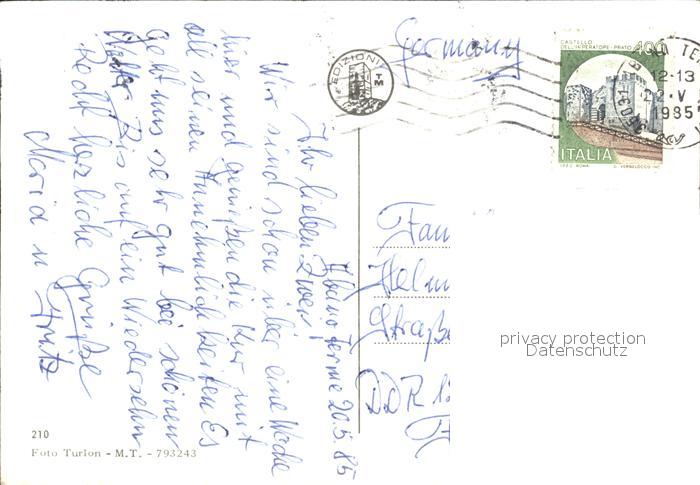 Abano Terme 20.5.85
Ihr lieben Zwei!
Wir sind schon über eine Woche
hier und genießen die Kur mit
all seinen Annehmlichkeiten Es
geht uns sehr gut bei schönem
Wetter Bis auf ein Wiedersehn
Recht herzliche Grüße
Maria u Fritz
Germany
EDIZIONI
TM
CASTELLO
DELL'IMPERATORE - PRATO 400
ITALIA
12-13
22 V
1985
Fam
Helm
Straße
DDR
privacy protection
Datenschutz
210
Foto Turlon - M.T. - 793243